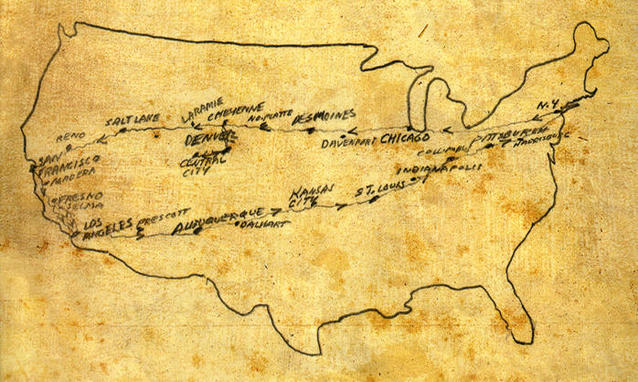 N.Y.
LARAMIE
SALT LAKE
CHEYENNE
NO. PLATTE
DES MOINES
RENO
DENVER
DAVENPORT
CHICAGO
PITTSBURGH
HARRISBURG
COLUMBUS
SAN
FRANCISCO
MADERA
CENTRAL
CITY
INDIANAPOLIS
FRESNO
SELMA
KANSAS
CITY
ST. LOUIS
LOS
ANGELES
PRESCOTT
ALBUQUERQUE
DALHART